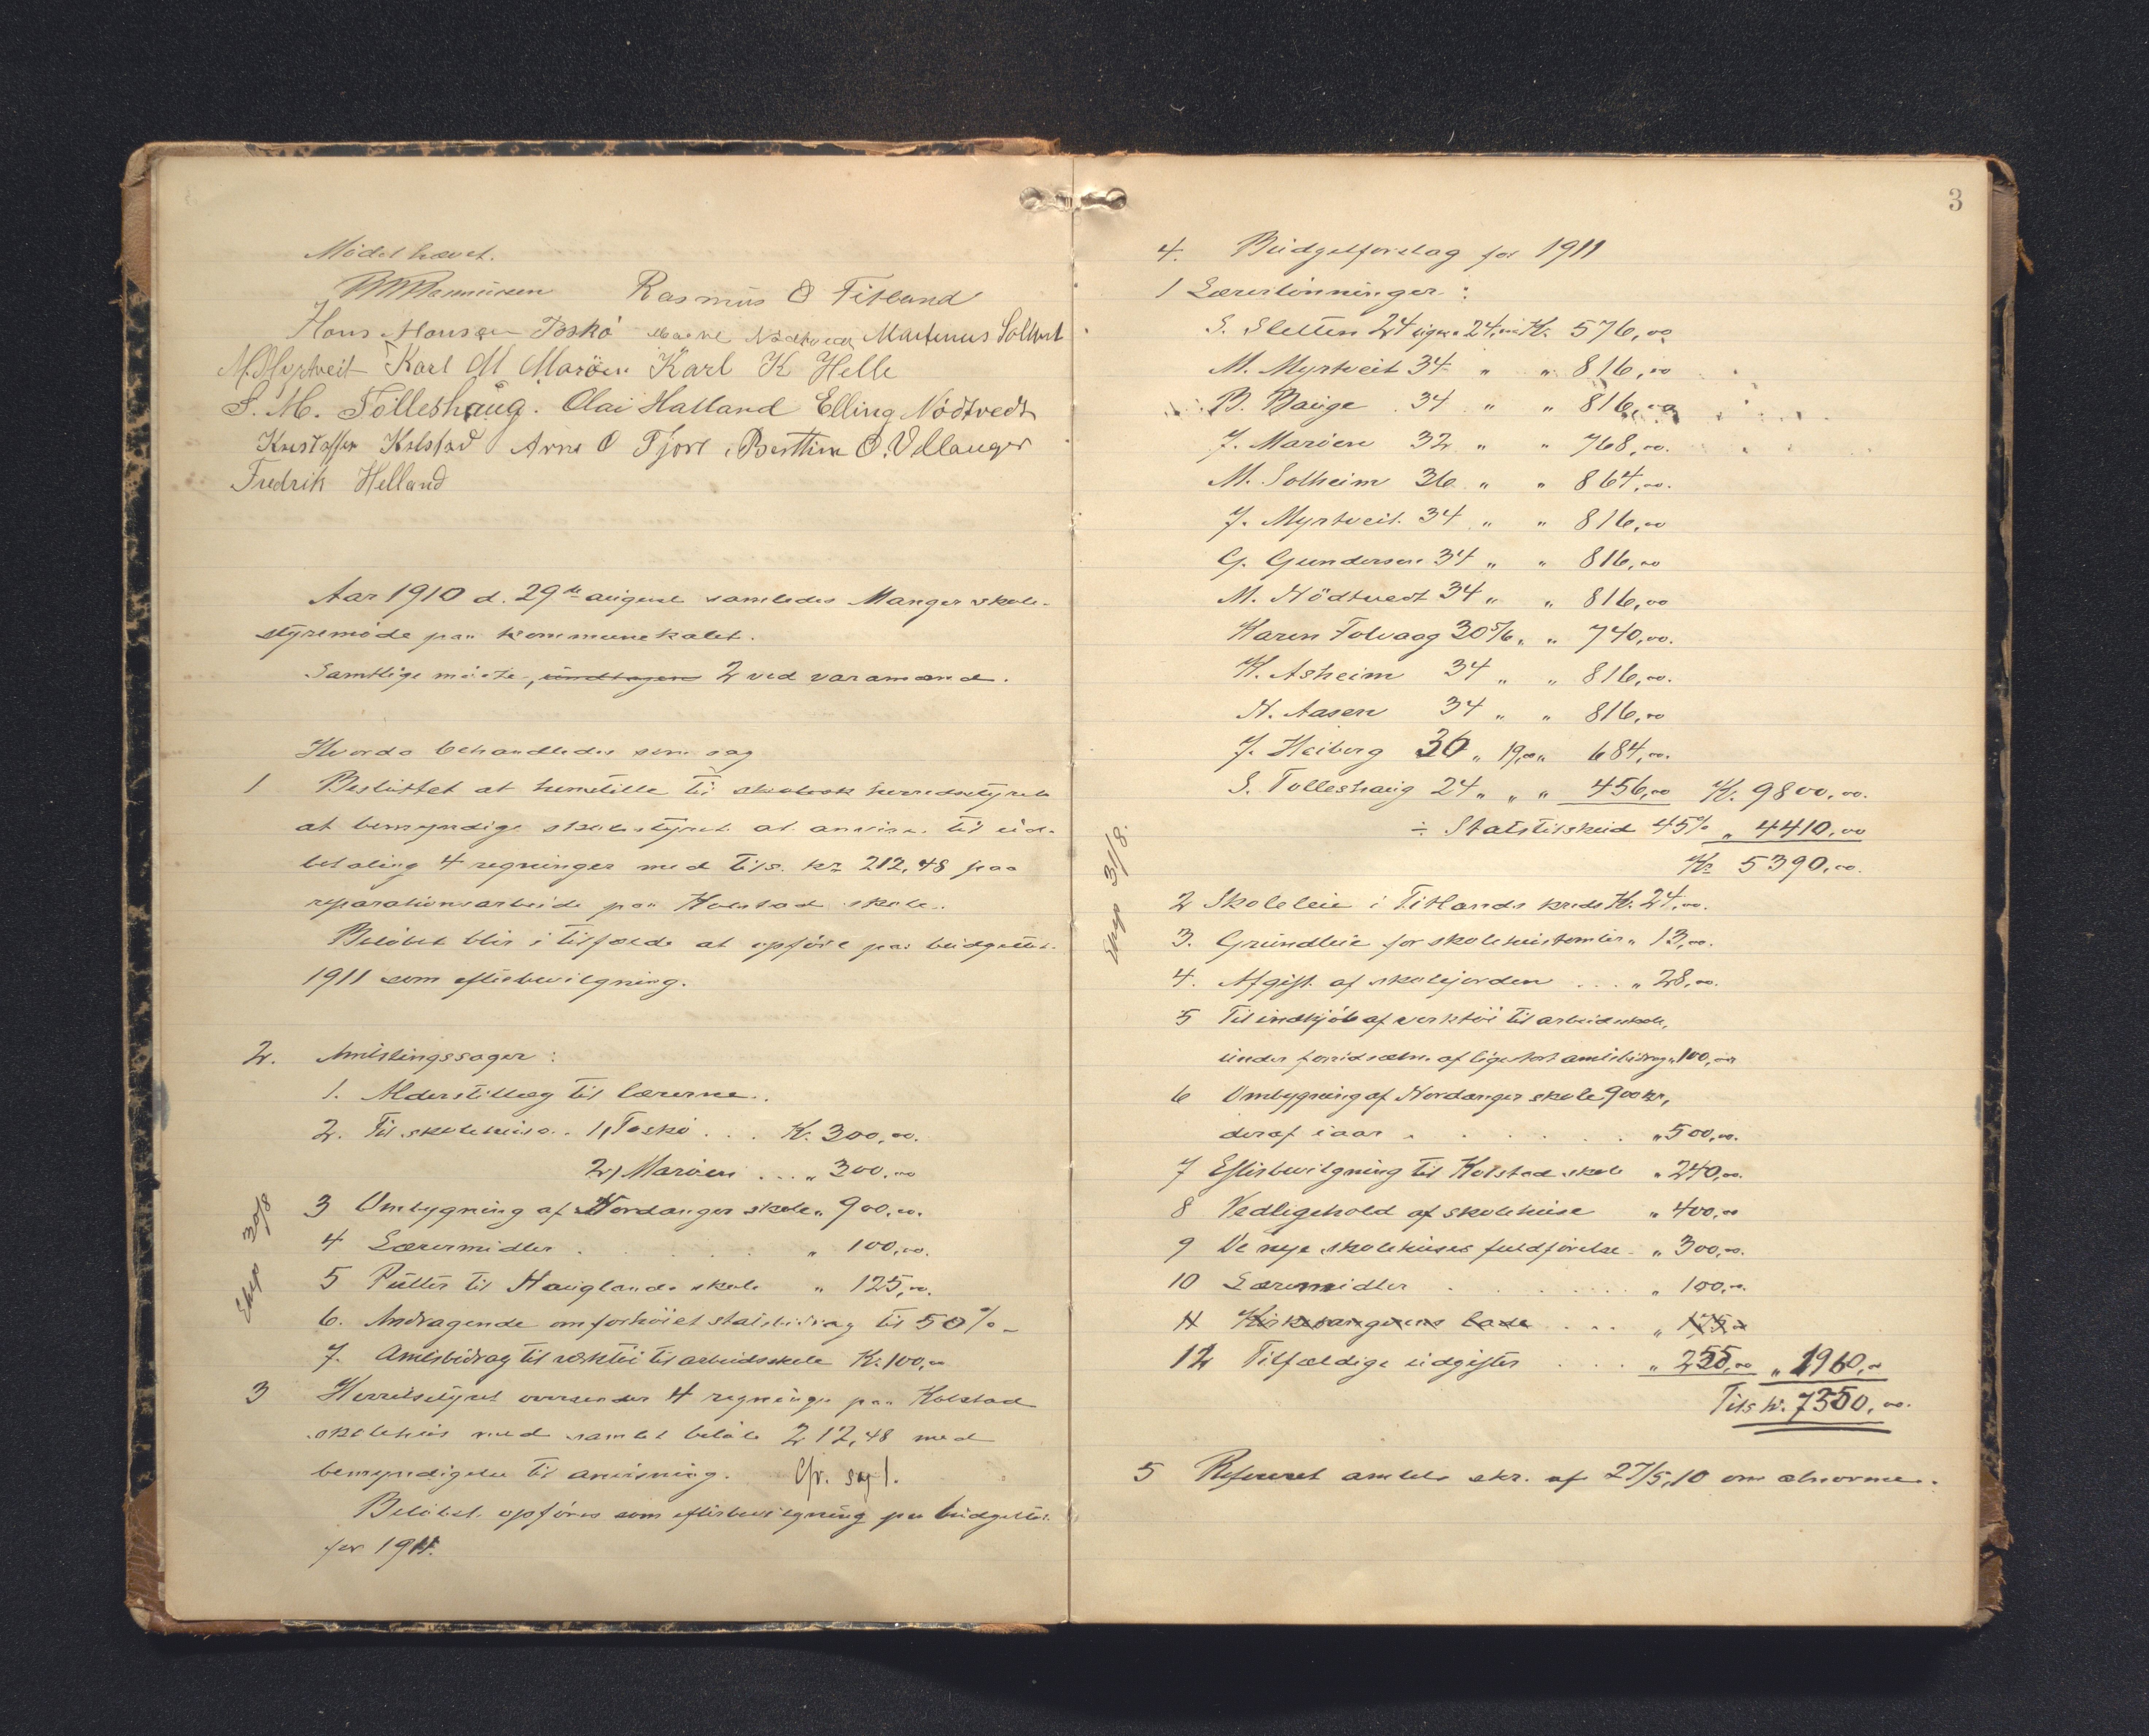 Mødet hævet.
Rasmus O Titland
Hans Hansen Toskø Magne Nødtvedt Martinus Solheim
M. Myrtveit Karl M Marøen Karl K Helle
S. M. Tolleshaug. Olai Hatland Elling Nödtvedt
Kristoffer Kolstad Arne O Fjore, Berthin O. Vdlanger
Fredrik Helland
Aar 1910 d. 29de august samledes Manger skole-
styremøde paa kommunekalet.
Samtlige møtte, undtagen 2 ved varamænd.
Hvorda behandledes som sag
1 Besluttet at henstille til herredsstyret
at bemyndige skolestyret at anvise til ud-
betaling 4 regninger med tils. kr 212,48 paa
reparationsarbeide paa Kolstad skole.
Beløbet blir i tilfælde at opføre paa budgettet
1911 som efterbevilgning.
2. Amtstingssager:
1. Alderstillæg til lærerne.
2. Til skolehuse. 1, Toskø . . . Kr. 300,00.
2, Marøen . . . " 300,00
3 Ombygning af Nordanger skole " 900,00.
4 Læremidler . . . " 100,00.
5 Pulter til Hauglands skole " 125,00.
6. Andragende om forhøiet statsbidrag til 50%
7. Amtsbidrag til verktøi til arbeidsskole Kr. 100,00
Exp 30/8
3 Herredsstyret oversender 4 regninger paa Kolstad
skolehus med samlet beløb 212,48 med
bemyndigelse til anvisning. Cfr. sag 1.
Beløbet opføres som efterbevilgning paa budgettet
for 1911.
3
4. Budgetforslag for 1911
1 Lærerlønninger:
S. Sletten 24 uger a 24,00 Kr. 576,00
M. Myrtveit 34 " " 816,00
B. Bauge 34 " " 816,00
J. Marøen 32 " " 768,00.
M. Solheim 36 " " 864,00.
J. Myrtveit 34 " " 816,00
G. Gundersen 34 " " 816,00
M. Nödtvedt 34 " " 816,00
Karen Tolvaag 30 5/6 " " 740,00.
K. Asheim 34 " " 816,00.
N. Aasen 34 " " 816,00
J. Heiberg 36 " 19,00 " 684,00.
S. Tolleshaug 24 " " " 456,00 Kr. 9800,00.
÷ Statstilskud 45% " 4410,00
Kr 5390,00.
Exp 31/8.
2 Skoleleie i Titlands kreds Kr. 24,00.
3. Grundleie for skolehustomter " 13,00.
4. Afgift af skolejorden . . . " 28,00.
5 Til indkjøb af verktøi til arbeidsskole,
under forudsætn. af lige stort amtsbidrag " 100,00
6 Ombygning af Nordanger skole 900 kr,
deraf iaar . . . " 500,00.
7 Efterbevilgning til Kolstad skole " 240,00.
8 Vedligehold af skolehuse " 400,00
9 De nye skolehuses fuldførelse " 300,00.
10 Læremidler . . . " 100,00.
11 Kirkesangerens . . . " 175,00
12 Tilfældige udgifter . . . " 255,00 " 1960,00
Tils kr. 7350,00.
5 Referert amtets skr. af 27/5,10 om abnorme.